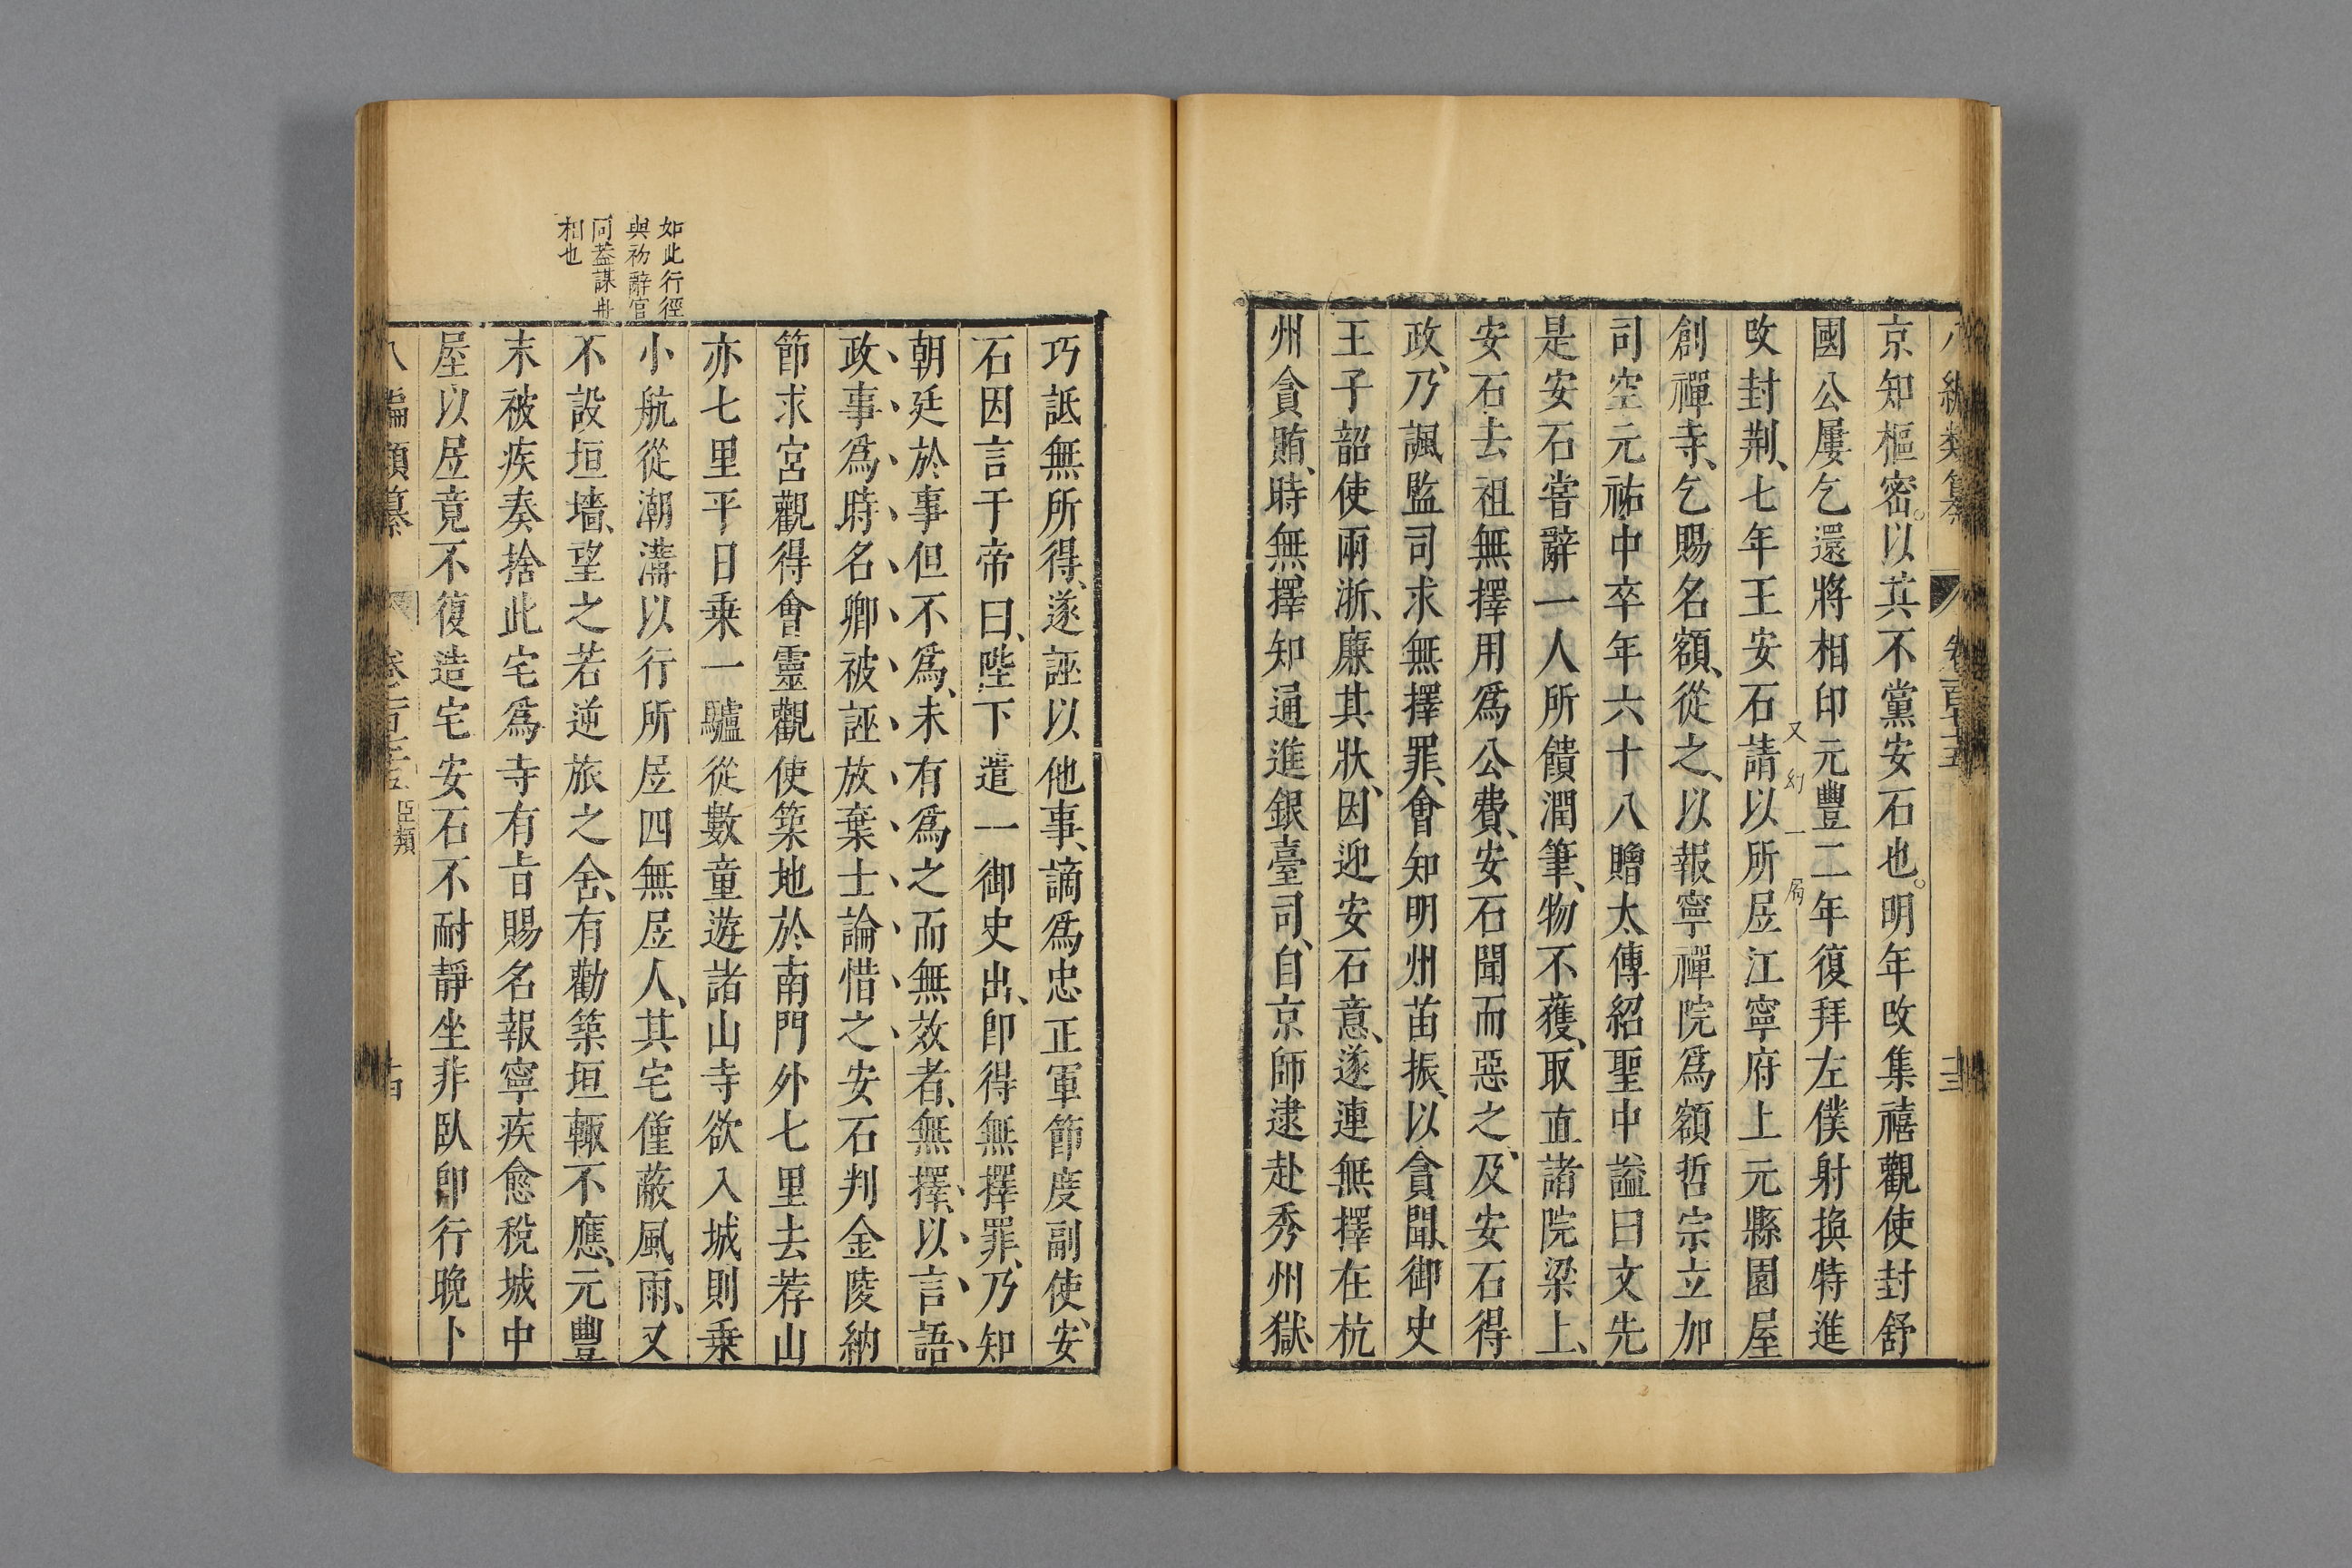 京知樞密。以其不黨安石也。明年改集禧觀使封舒
國公屢乞還將相印元豐二年復拜左僕射換特進
又幻一局
改封荆、七年王安石請以所居江寧府上元縣園屋
創禪寺、乞賜名額、從之、以報寧禪院爲額哲宗立加
司空元祐中卒年六十八贈太傳紹聖中謚曰文先
是安石嘗辭一人所饋潤筆、物不獲、取直諸院梁上、
安石去祖無擇用爲公費、安石聞而惡之、及安石得
政、乃諷監司求無擇罪、會知明州苗振、以貪聞、御史
王子韶使兩浙、廉其狀、因迎安石意、遂連無擇在杭
州貪賄、時無擇知通進銀臺司、自京師逮赴秀州獄、
巧詆無所得、遂誣以他事、謫爲忠正軍節度副使、安
石因言于帝曰、陛下遣一御史出、卽得無擇罪、乃知
朝廷於事但不爲、未有爲之而無效者、無擇、以言語、
政事爲時名卿被誣放棄士論惜之安石判金陵納
節求宮觀得會靈觀使築地於南門外七里去荐山
亦七里平日乗一驢從數童遊諸山寺欲入城則乗
小航從潮溝以行所居四無居人、其宅僅蔽風雨、又
不設垣墻、望之若逆旅之舍、有勸築垣輙不應、元豐
末被疾奏捨此宅爲寺有旨賜名報寧疾愈稅城中
屋以居竟不復造宅安石不耐靜坐非臥卽行晚卜
如此行徑
與初辭官
同蓋謀毌
相也